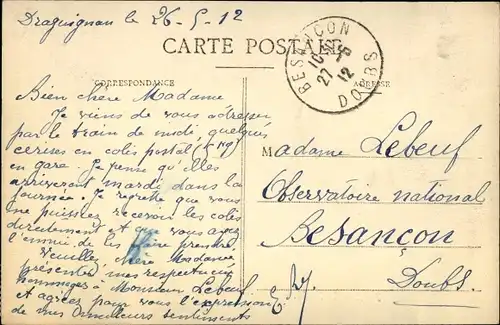 Draguignan le 26-5-12
CARTE POSTALE
CORRESPONDANCE
ADRESSE
BESANÇON
DOUBS
27-5
12
Bien chère Madame
Je viens de vous adresser
par le train de midi, quelques
cerises en colis postal
en gare. Je pense qu'elles
arriveront mardi dans la
journée. Je regrette que vous
ne puissiez recevoir les colis
directement et que vous ayez
l'ennui de les faire prendre.
Veuillez, chère Madame
présenter mes respectueux
hommages à Monsieur Lebeuf
et agréez pour vous l'expression
de mes meilleurs sentiments
Madame Lebeuf
Observatoire national
Besançon
Doubs.